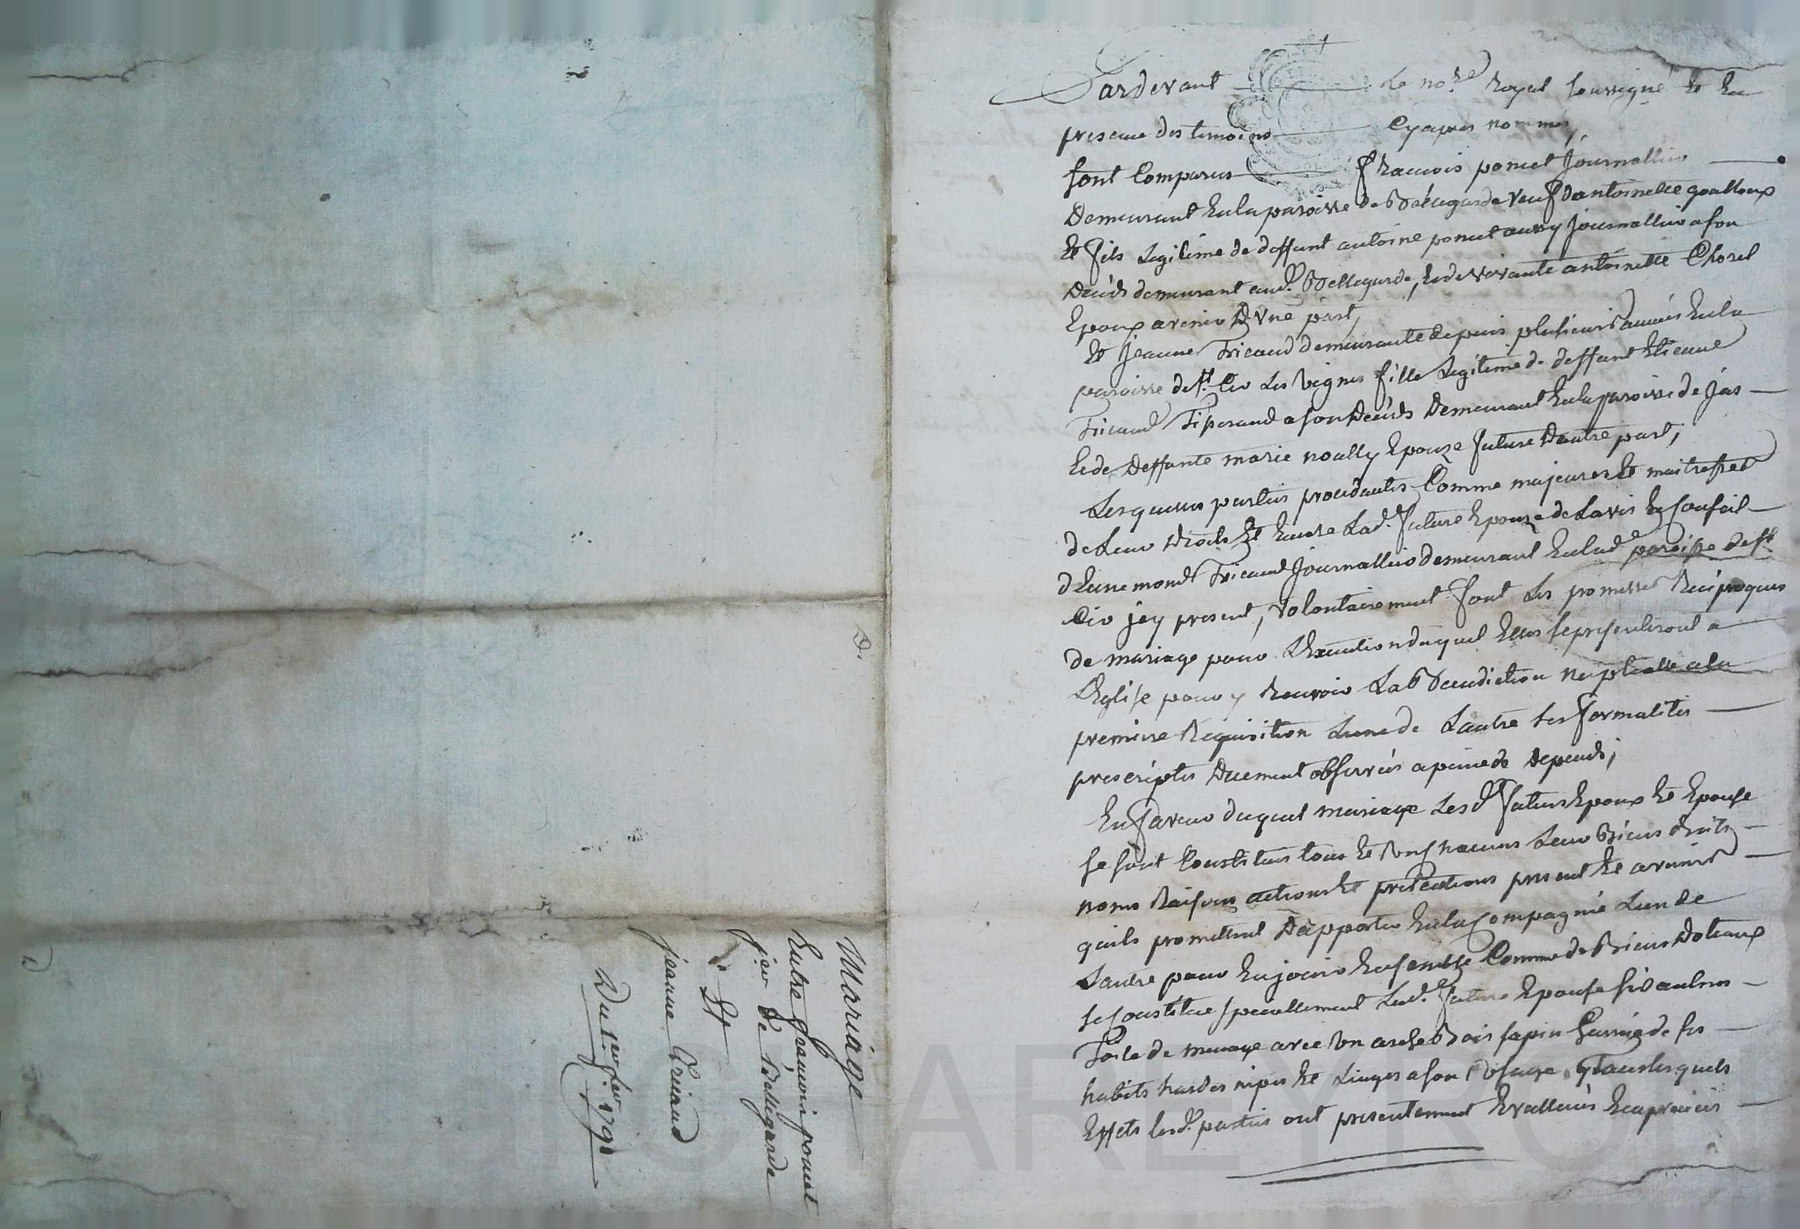 Pardevant le no.re Royal soussigné et En
presence des temoins cy apres nommes,
sont Comparus françois poncet Journallier
Demeurant En la paroisse de Bellegarde veuf dantoinette goutteux
et fils Legitime de deffunt antoine poncet aussy Journallier a son
Décès demeurant aud.t Bellegarde, Et de vivante antoinette Chorel
Epoux avenir D'Une part,
Et Jeanne Tricaud demeurante depuis plusieurs années En la
paroisse de s.t Cir Les Vignes fille Legitime de deffunt Etienne
Tricaud Tisserand a son Décès Demeurant En la paroisse de Jas
Et de Deffunte marie noally Epouze future Dautre part,
Lesquelles parties procedantes Comme majeures et maitresses
de Leur Droits Et Encore Lad. future Epouze de Lavis Et Conseil
de Tricaud Journallier demeurant En lad.e paroisse de s.t
Cir Jcy present, volontairement font Les promesses Reciproques
de mariage pour L'Execution duquel Elles se presenteront a
L'Eglise pour y Recevoir La Benediction Nuptialle a la
premiere Requisition Lune de Lautre Les formalités
prescriptes Duement observées a peine de Depends;
En faveur duquel mariage Lesd.s futurs Epoux Et Epouse
se sont Constitués tous Et Uns chacuns Leur Biens droits
noms Raisons actions Et pretentions present Et avenir
quils promettent D'apporter En la Compagnie Lun de
Lautre pour En jouir Ensemble Comme de Biens Dotaux
se Constitue specialement Lad.e future Epouse six aulnes
Toile de menage avec Un arche Bois sapin Garnie de ses
habits hardes nipes Et Linges a son Usage, Tous lesquels
Effets lesd. parties ont presentement Evalluées Et apreciées
D.
Mariage
Entre françois poncet
jer De Bellegarde
&
jeanne Tricaud
Du 1er fer 1791